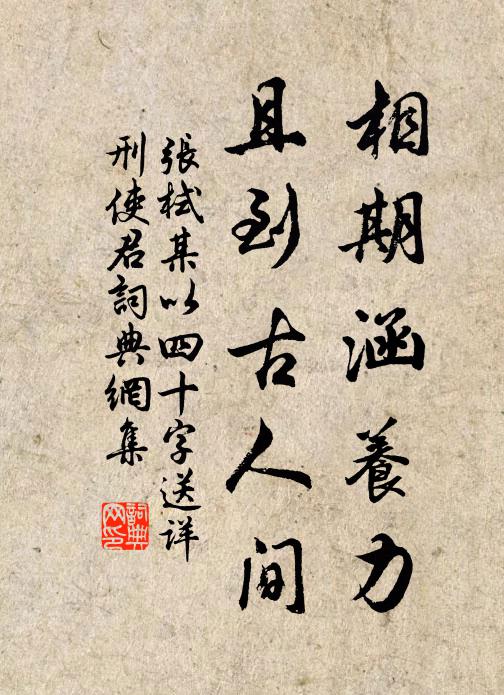 相期涵養力
且到古人間
張栻某以四十字送详
刑使君詞典網集
詞典
网印